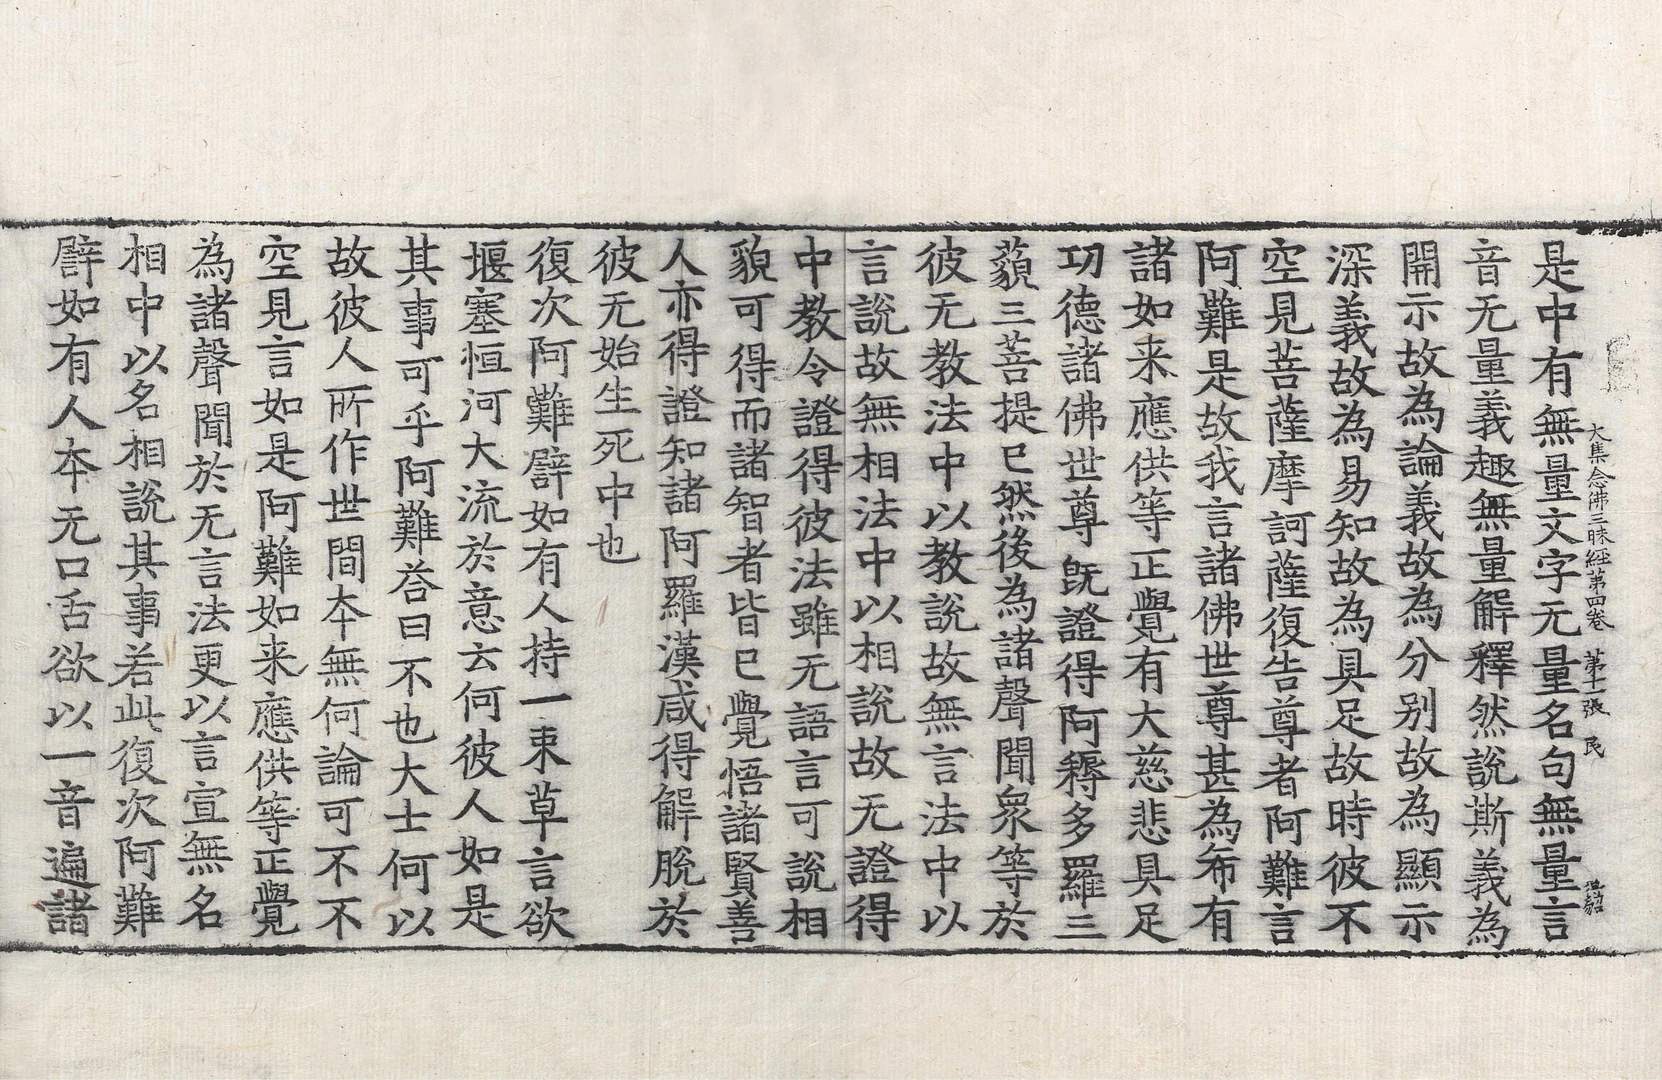 大集念佛三昧經第四卷 第十一張 民
是中有無量文字无量名句無量言
音无量義趣無量解釋然說斯義為
開示故為論義故為分别故為顯示
深義故為易知故為具足故時彼不
空見菩薩摩訶薩復告尊者阿難言
阿難是故我言諸佛世尊甚為希有
諸如来應供等正覺有大慈悲具足
功德諸佛世尊旣證得阿耨多羅三
藐三菩提已然後為諸聲聞衆等於
彼无教法中以教說故無言法中以
言說故無相法中以相說故无證得
中教令證得彼法雖无語言可說相
貌可得而諸智者皆已覺悟諸賢善
人亦得證知諸阿羅漢咸得解脫於
彼无始生死中也
復次阿難譬如有人持一束草言欲
堰塞恒河大流於意云何彼人如是
其事可乎阿難荅曰不也大士何以
故彼人所作世間夲無何論可不不
空見言如是阿難如来應供等正覺
為諸聲聞於无言法更以言宣無名
相中以名相說其事若此復次阿難
譬如有人夲无口舌欲以一音遍諸